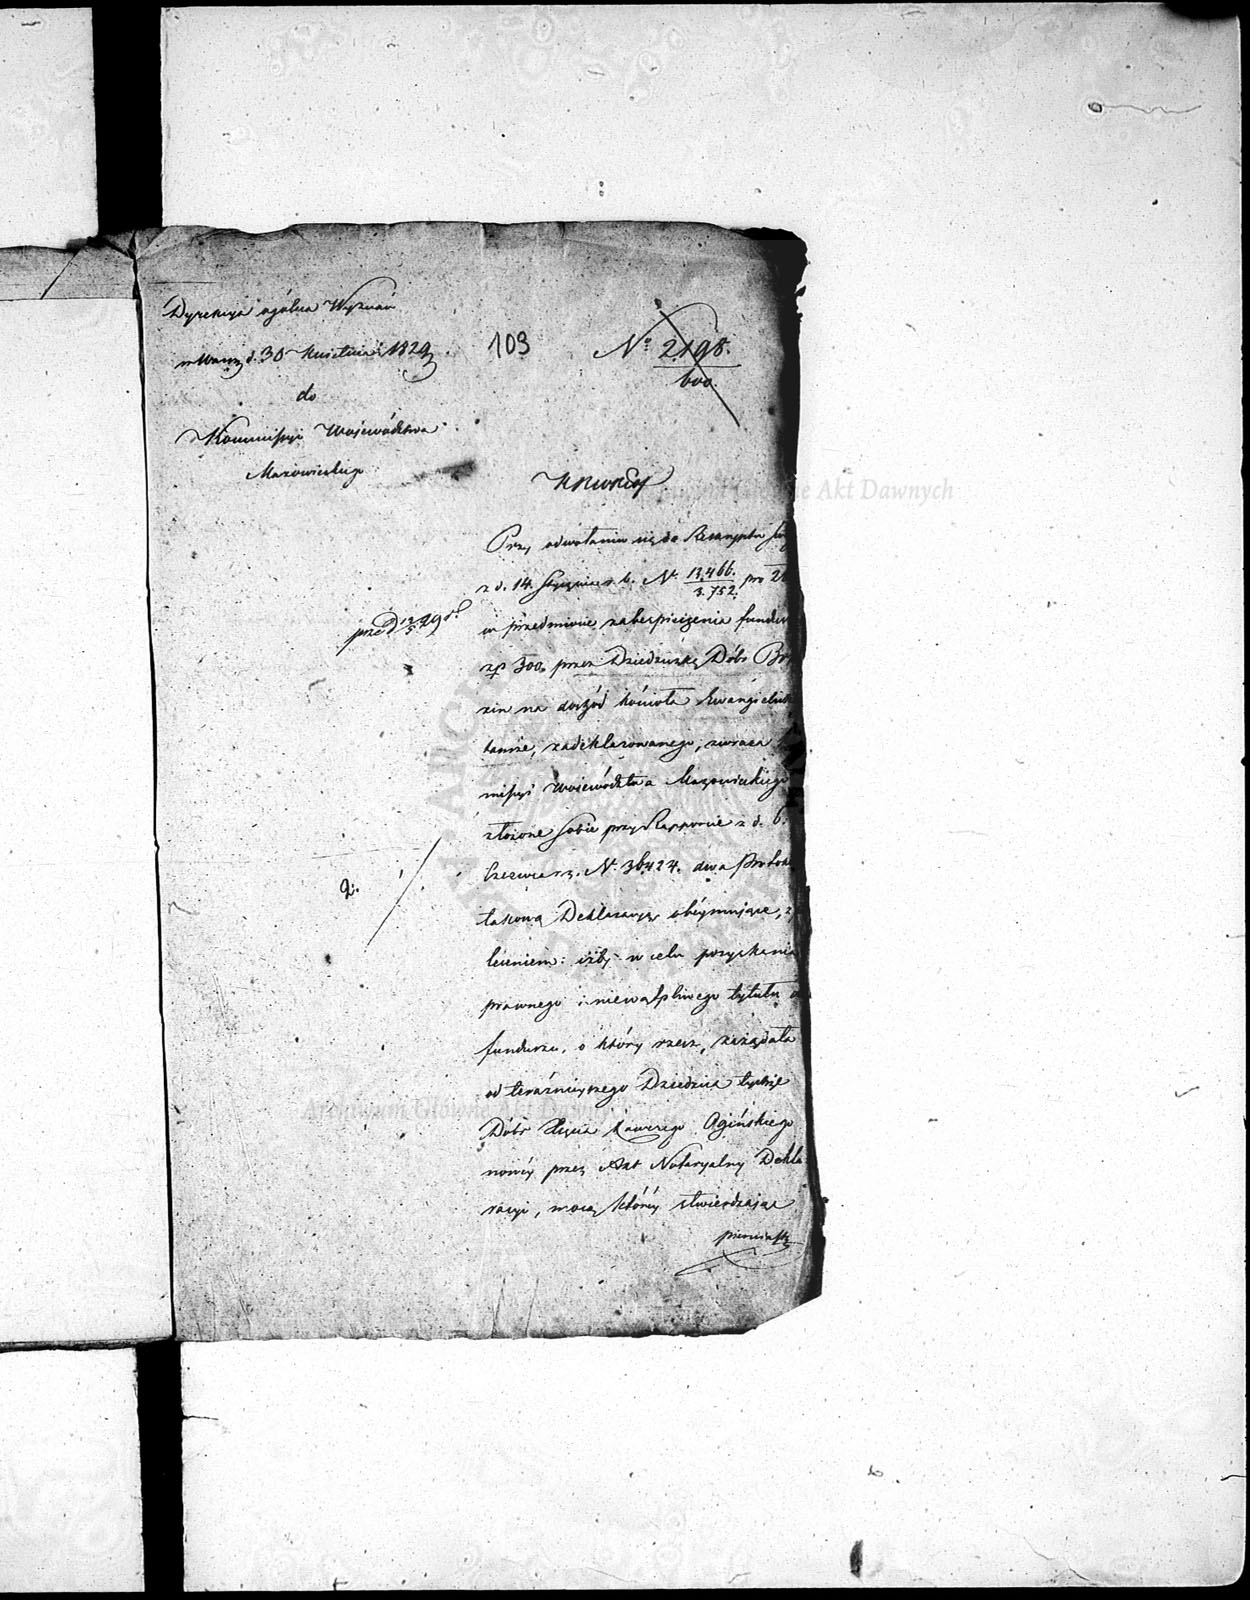 Dyrekcya ogólna Wyznań
w Warsz. d. 30 Kwietnia 1829
do
Kommissyi Województwa
Mazowieckiego
103
No 2198.
600.
przed 12/5 29 r.
Przy odwołaniu się do Reskryptu
z d. 14. Stycznia r. b. No 13,466./3,752. pro 2
w przedmiocie zabezpieczenia fundu
zp 300, przez Dziedziczkę Dóbr Br
zin na dochód kościoła Ewangielick
tamże, zadeklarowanego, zwraca
missyi Województwa Mazowieckiego
złożone sobie przy Rapporcie z d. 6.
Czerwca r. z. No 36424. dwa Protok
takową Deklaracyę obejmujące, z
leceniem: iżby w celu pozyskania
prawnego i niewątpliwego tytułu
funduszu, o który rzecz, zażądała
od teraźnieyszego Dziedzica tychże
Dóbr Xięcia Xawerego Ogińskiego
nowey przez Akt Notaryalny Dekla
racyi, mocą którey stwierdzając
2.
Archiwum Główne Akt Dawnych
Archiwum Główne Akt Dawnych